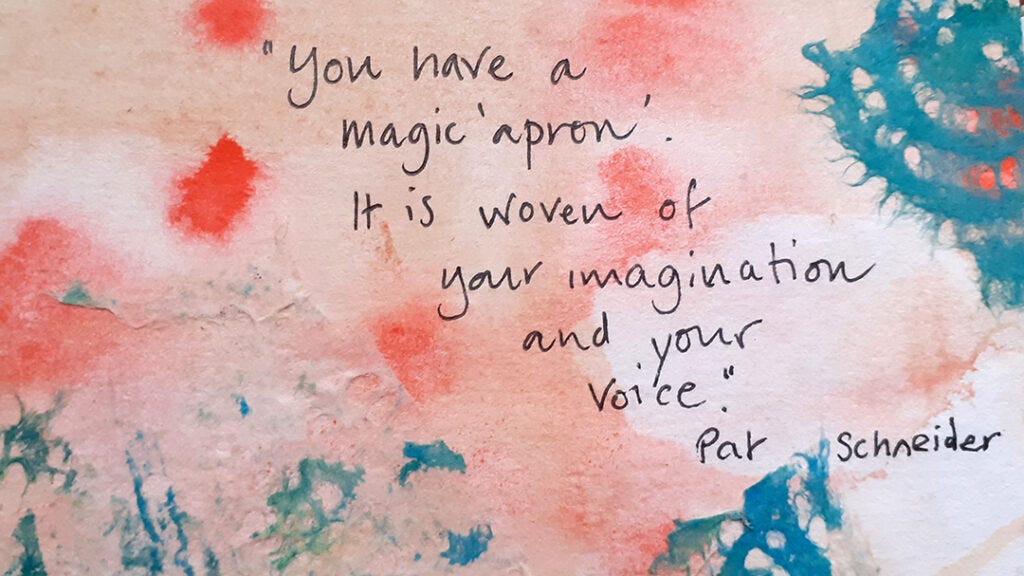 "You have a
magic 'apron'.
It is woven of
your imagination
and your
voice."
Pat Schneider